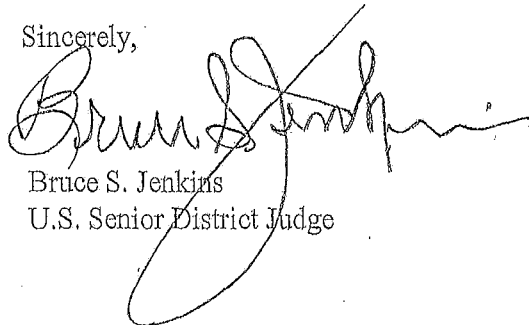 Sincerely,
Bruce S. Jenkins
Bruce S. Jenkins
U.S. Senior District Judge